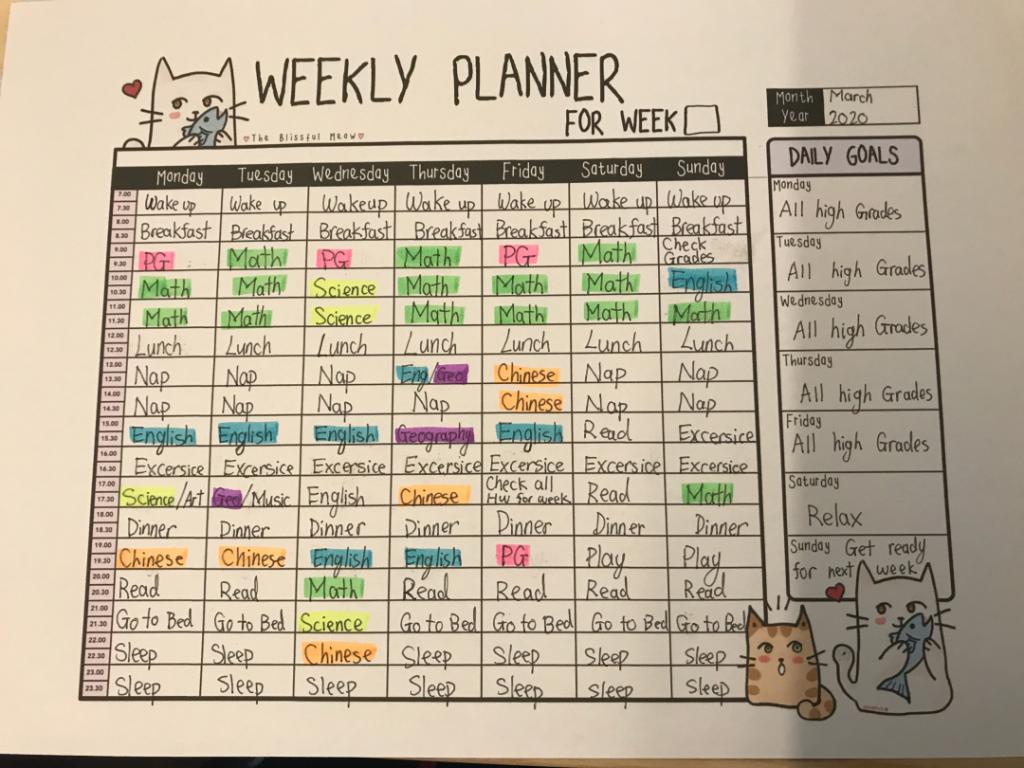 WEEKLY PLANNER
FOR WEEK
♥The Blissful Meow♥
Month March
Year 2020
Monday Tuesday Wednesday Thursday Friday Saturday Sunday
7.00
7.30 Wake up Wake up Wakeup Wake up Wake up Wake up Wake up
8.00
8.30 Breakfast Breakfast Breakfast Breakfast Breakfast Breakfast Breakfast
9.00
9.30 PG Math PG Math PG Math Check Grades
10.00
10.30 Math Math Science Math Math Math English
11.00
11.30 Math Math Science Math Math Math Math
12.00
12.30 Lunch Lunch Lunch Lunch Lunch Lunch Lunch
13.30 Nap Nap Nap Eng/Geo Chinese Nap Nap
14.00
14.30 Nap Nap Nap Nap Chinese Nap Nap
15.00
15.30 English English English Geography English Read Excersice
16.00
16.30 Excersice Excersice Excersice Excersice Excersice Excersice Excersice
17.00
17.30 Science/Art Geo/Music English Chinese Check all HW for week Read Math
18.00
18.30 Dinner Dinner Dinner Dinner Dinner Dinner Dinner
19.00
19.30 Chinese Chinese English English PG Play Play
20.00
20.30 Read Read Math Read Read Read Read
21.00
21.30 Go to Bed Go to Bed Science Go to Bed Go to Bed Go to Bed Go to Bed
22.00
22.30 Sleep Sleep Chinese Sleep Sleep Sleep Sleep
23.00
23.30 Sleep Sleep Sleep Sleep Sleep Sleep Sleep
DAILY GOALS
Monday
All high Grades
Tuesday
All high Grades
Wednesday
All high Grades
Thursday
All high Grades
Friday
All high Grades
Saturday
Relax
Sunday Get ready
for next week